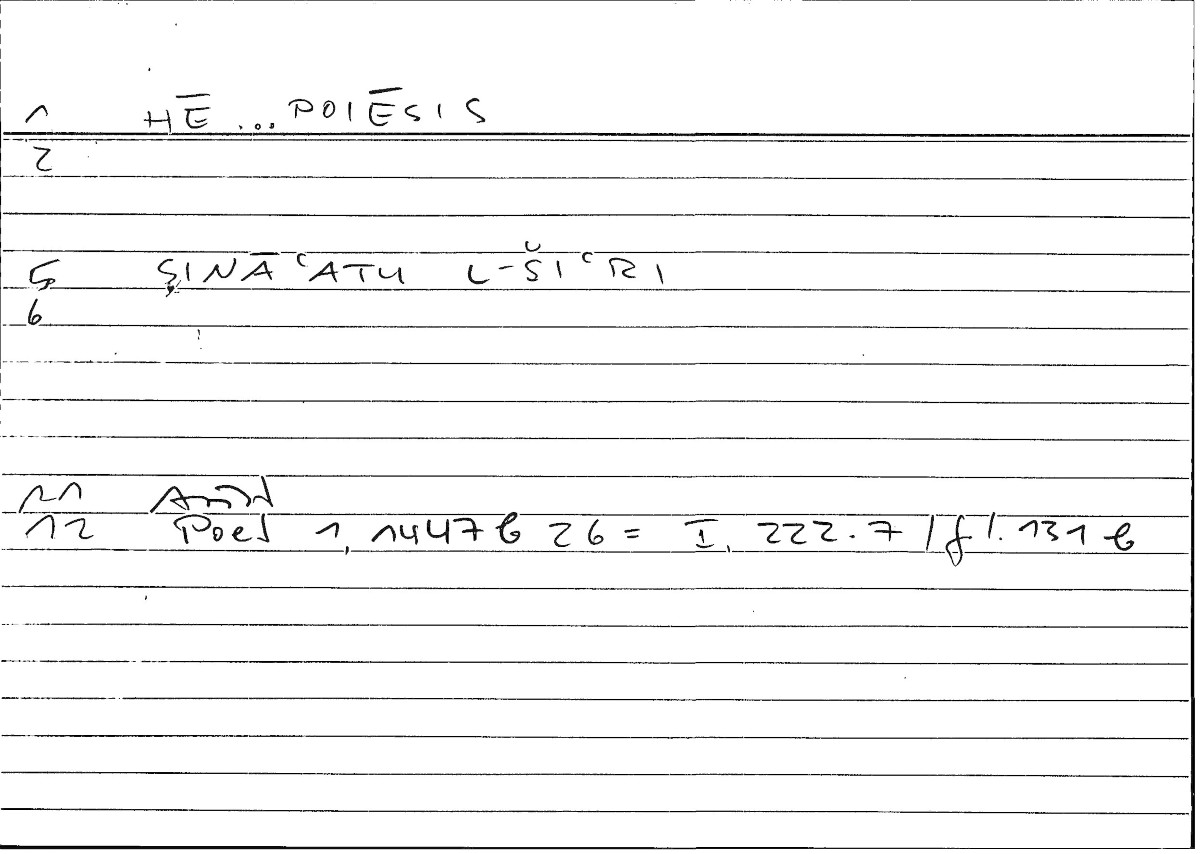 1 HĒ ... POIĒSIS
2
5 ṢINĀʿATU L-ŠIʿRI
6
11 Arist
12 Poet 1, 1447b 26 = I, 222.7 / fl. 131b